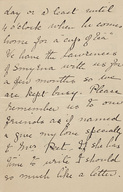 day or 2 East until
4 o'clock when he comes
home for a "cup of tea"
We have the
of Smyrna with us for
a few months so we
are kept busy. Please
remember us to our
friends as if named
& give my love specially
to Mrs Peet. If she has
time to write I should
so much like a letter.